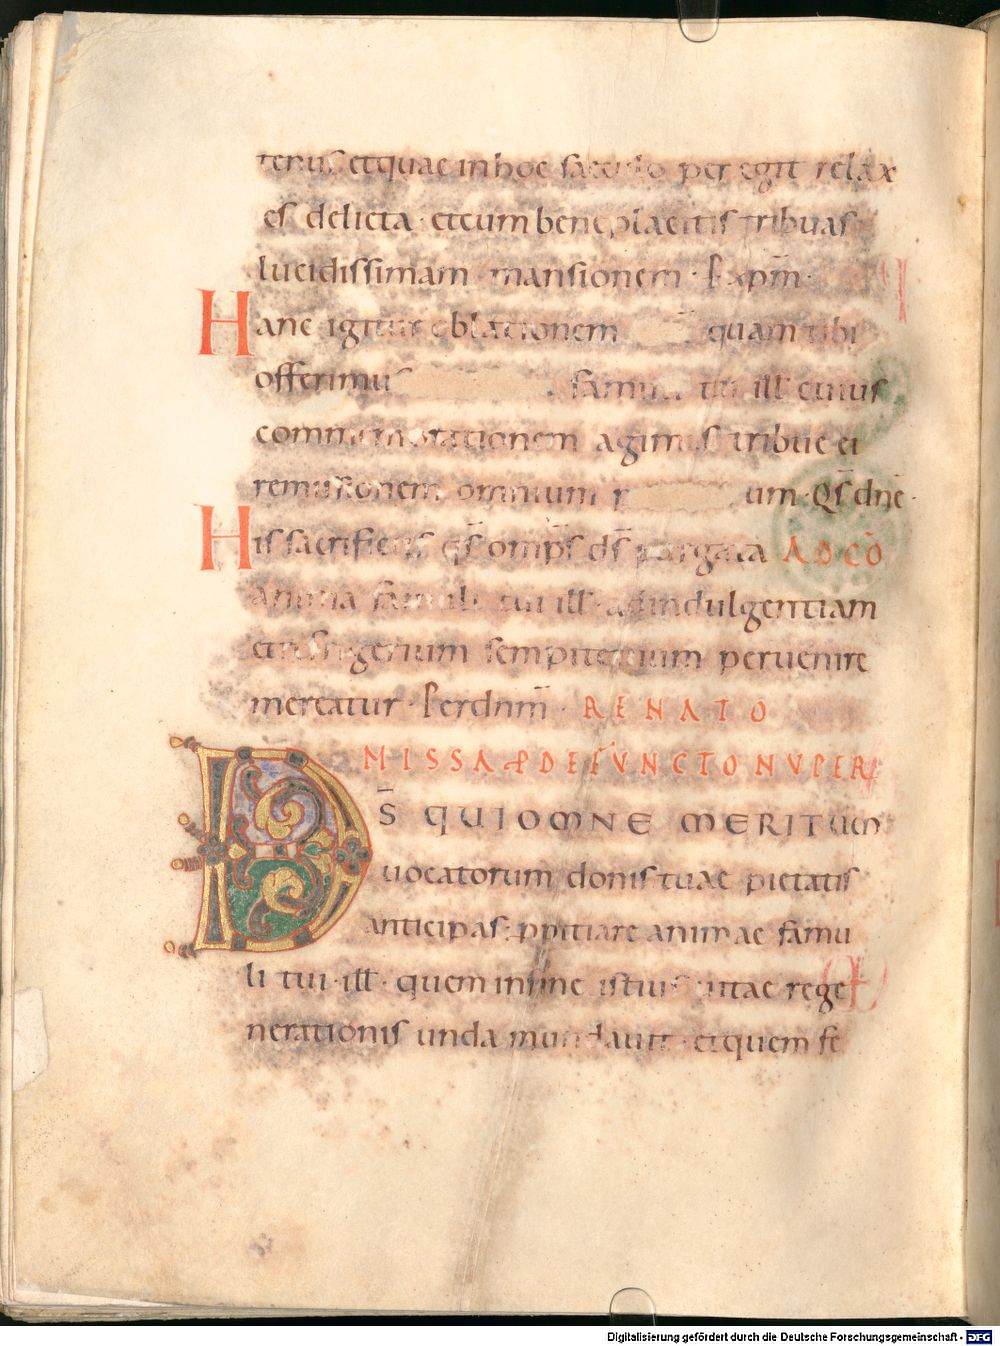 tenus et quae in hoc saeculo peregit relax
es delicta · et cum bene placitis tribuas
lucidissimam mansionem · P xpm̄ ·
Hanc igitur oblationem quam tibi
offerimus famuli tui ill cuius
commemorationem agimus tribue ei
remissionem omnium um · Qs̄ dnē ·
His sacrificiis qs̄ omp̄s ds̄ purgata AD CŌ
Anima famuli tui ill · ad indulgentiam
et refrigerium sempiternum peruenire
mereatur · Per dnm̄ · RENATO
MISSA P DEFUNCTO NUPER
DS̄ QUI OMNE MERITUM
uocatorum donis tuae pietatis
anticipas · ppitiare animae famu
li tui · ill · quem in fine istius uitae rege
nerationis unda mundauit · et quem fe
Digitalisierung gefördert durch die Deutsche Forschungsgemeinschaft - DFG